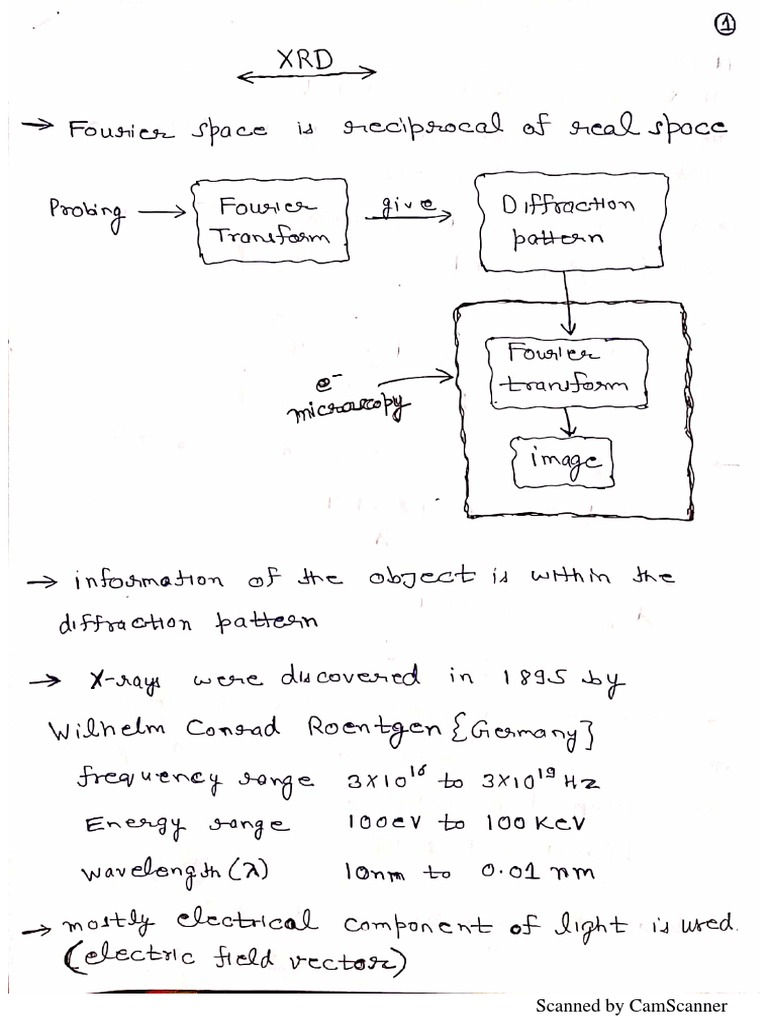 1
XRD
→ Fourier space is reciprocal of real space
Probing → Fourier Transform give → Diffraction pattern
Fourier transform
e⁻ microscopy →
image
→ information of the object is within the
diffraction pattern
→ X-rays were discovered in 1895 by
Wilhelm Conrad Roentgen {Germany}
frequency range 3X10¹⁶ to 3X10¹⁹ HZ
Energy range 100eV to 100 KeV
wavelength (λ) 10nm to 0.01 nm
→ mostly electrical component of light is used.
(electric field vector)
Scanned by CamScanner